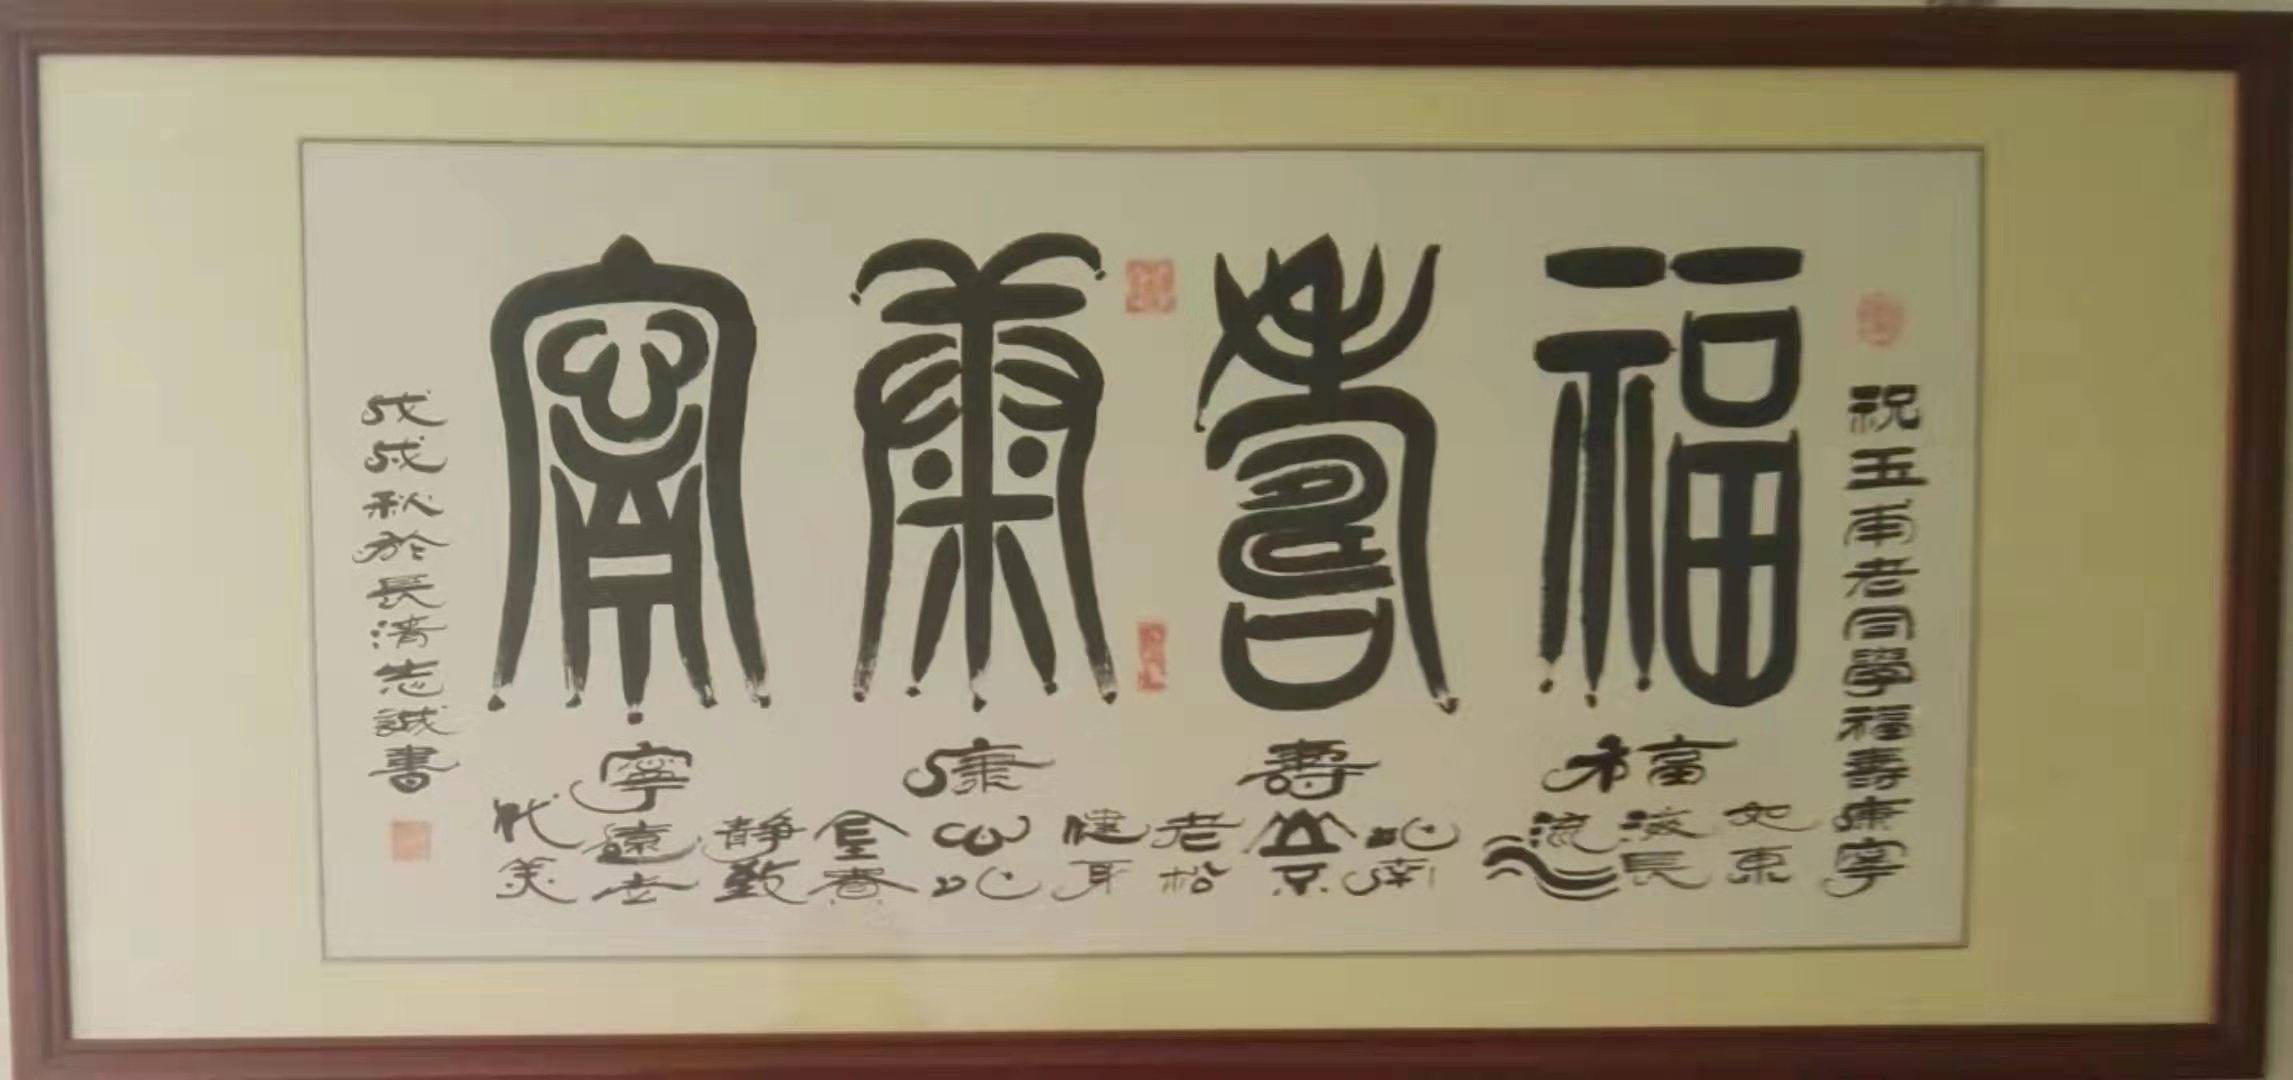 祝玉甫老同學福壽康寧
福壽康寧
福
如東海長流水
壽
比南山不老松
康
健身心比金貴
寧
靜致遠世代美
戊戌秋於長清志誠書